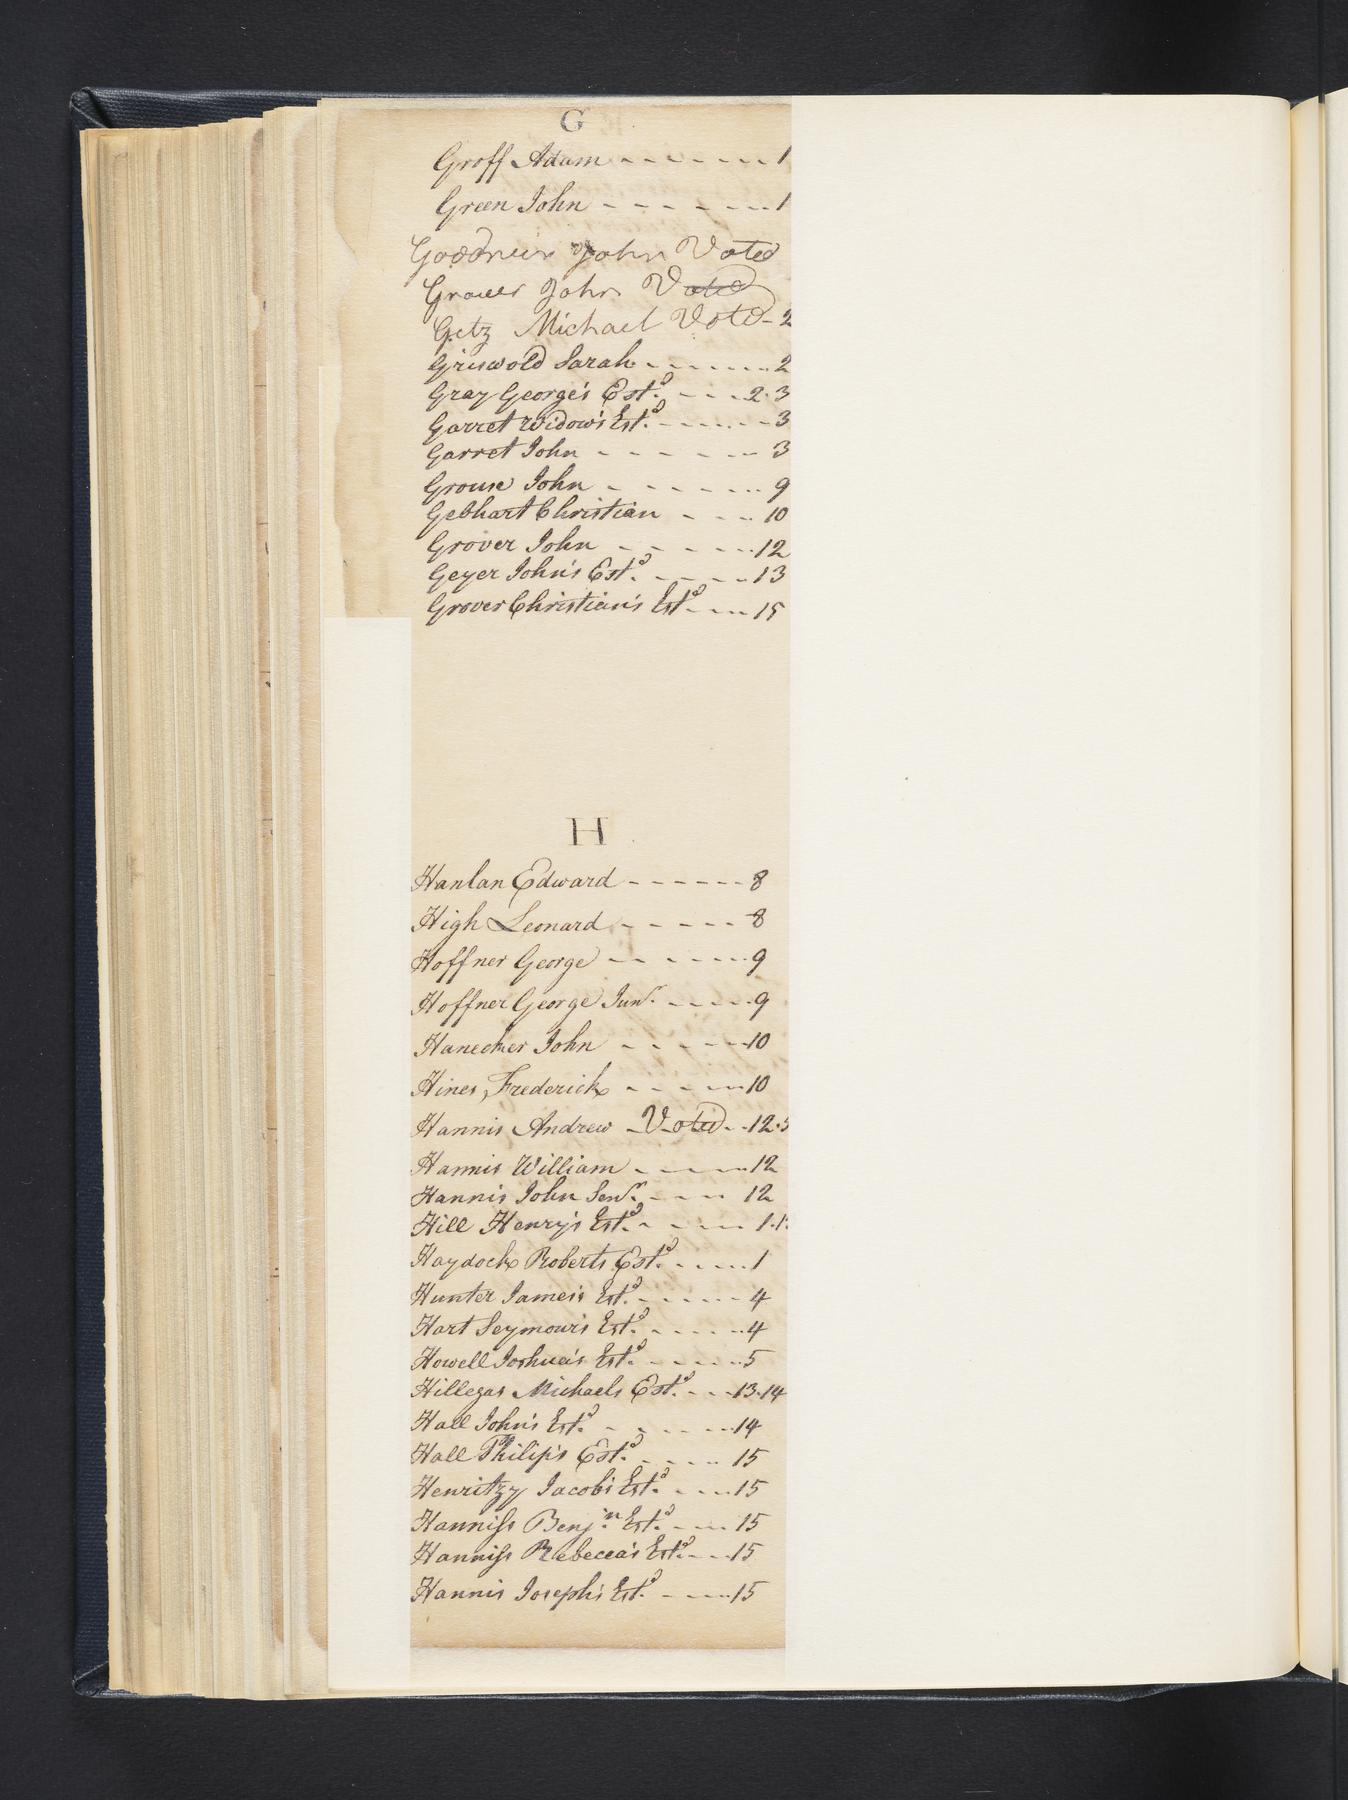 G
Groff Adam - - - - - - - 1
Green John - - - - - - - 1
John Voted
Grover John Voted
Getz Michael Voted - 2
Griswold Sarah - - - - - - - 2
Gray George's Est.d - - - 2.3
Garret Widow's Est.d - - - - - - 3
Garret John - - - - - - 3
Grouse John - - - - - - - 9
Gebhart Christian - - - - 10
Grover John - - - - - - 12
Geyer John's Est.d - - - - - 13
Grover Christian's Est.d - - - 15
H
Hanlan Edward - - - - - - 8
High Leonard - - - - - - 8
Hoffner George - - - - - - 9
Hoffner George Junr. - - - - - 9
Hanecker John - - - - - - 10
Hines Frederick - - - - - - 10
Hannis Andrew - Voted - - 12.
Hannis William - - - - - - 12
Hannis John Senr. - - - - 12
Hill Henry's Est.d - - - - - 1.
Haydock Roberts Est.d - - - - - 1
Hunter James's Est.d - - - - - - 4
Hart Seymour's Est.d - - - - - - 4
Howell Joshua's Est.d - - - - - - 5
Hillegas Michaels Est.d - - - 13.14
Hall John's Est.d - - - - - - 14
Hall Philip's Est.d - - - - - 15
Henritzy Jacob's Est.d - - - - 15
Hanniss Benj.n Est.d - - - - 15
Hanniss Rebecca's Est.d - - - 15
Hannis Joseph's Est.d - - - - - 15